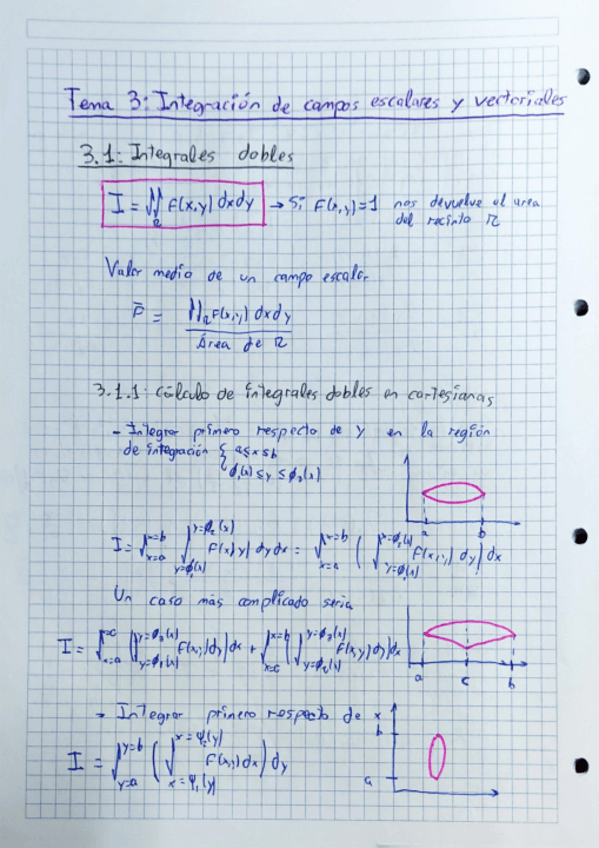 Tema 3: Integración de campos escalares y vectoriales
3.1: Integrales dobles
I = ∬_R F(x,y) dxdy → Si F(x,y)=1 nos devuelve el area
del recinto R
Valor medio de un campo escalar
F̄ = ∬_R F(x,y) dxdy / Área de R
3.1.1: Cálculo de integrales dobles en cartesianas
- Integrar primero respecto de y en la región
de integración { a≤x≤b
ϕ₁(x) ≤ y ≤ ϕ₂(x)
a b
I = ∫_{x=a}^{x=b} ∫_{y=ϕ₁(x)}^{y=ϕ₂(x)} F(x,y) dydx = ∫_{x=a}^{x=b} ( ∫_{y=ϕ₁(x)}^{y=ϕ₂(x)} F(x,y) dy ) dx
Un caso más complicado seria
I = ∫_{x=a}^{x=c} ( ∫_{y=ϕ₁(x)}^{y=ϕ₂(x)} F(x,y) dy ) dx + ∫_{x=c}^{x=b} ( ∫ F(x,y) dy ) dx
a c b
- Integrar primero respecto de x
b
a
I = ∫_{y=a}^{y=b} ( ∫_{x=Ψ₁(y)}^{x=Ψ₂(y)} F(x,y) dx ) dy